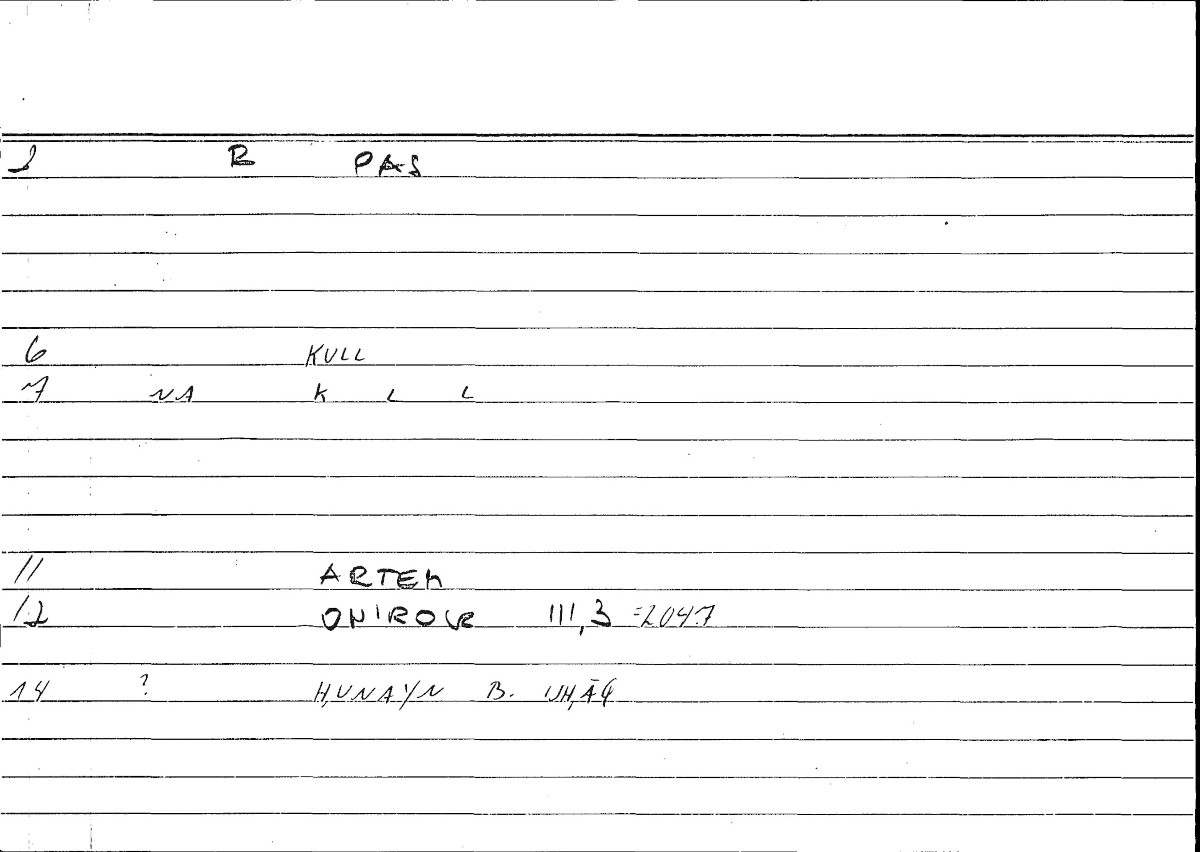 1 R PAS
6 KULL
7 NA K L L
11 ARTEM
12 ONIROCR III,3 =2047
14 ? ḤUNAYN B. ISḤĀQ